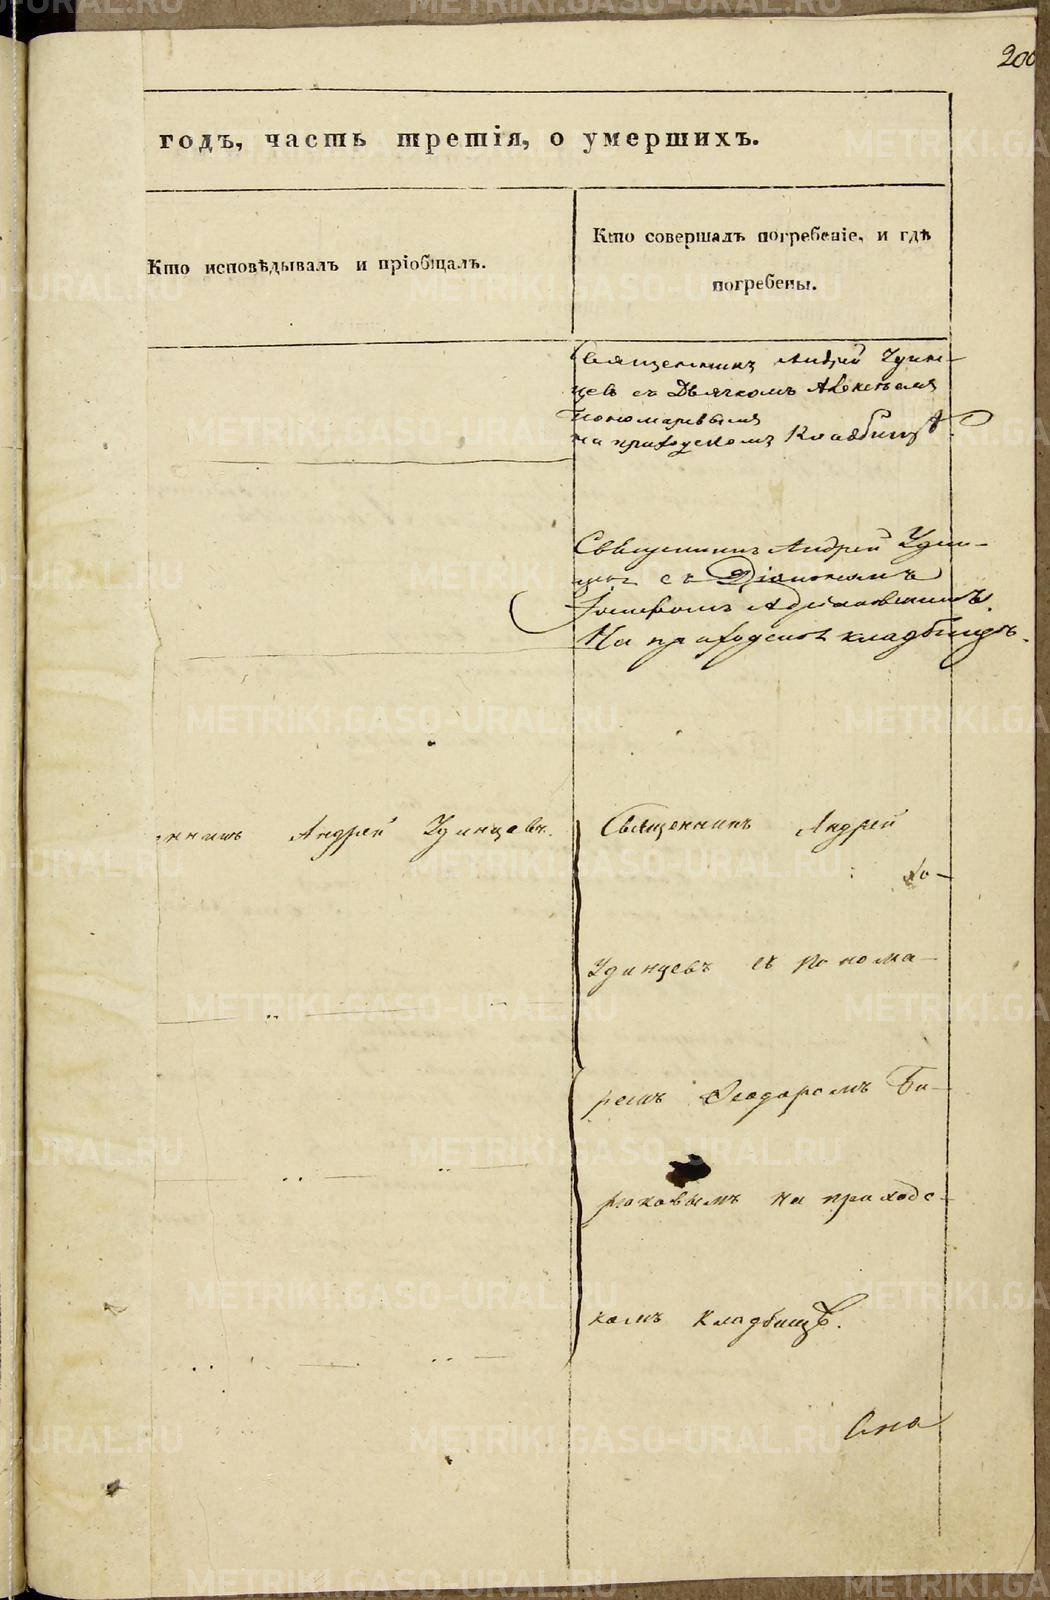 200
годъ, часть третія, о умершихъ.
Кто исповѣдывалъ и пріобщалъ.
Кто совершалъ погребеніе, и гдѣ
погребены.
Священникъ Андрей Удин-
цевъ съ Дьячкомъ Алексѣемъ
Пономаревымъ
на приходскомъ кладбищѣ.
Священникъ Андрей Удин-
цевъ съ Діакономъ
На приходскомъ кладбищѣ.
Андрей Удинцевъ.
Священникъ Андрей
Удинцевъ съ Понома-
ремъ Ѳеодоромъ Би-
рюковымъ на приходс-
комъ кладбищѣ.
METRIKI.GASO-URAL.RU